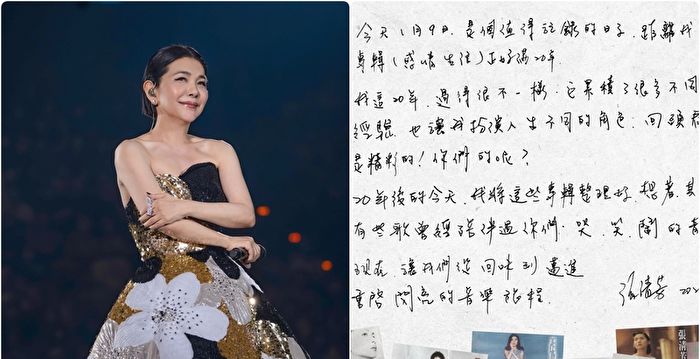 今天1月9日.是個值得註錄的日子.距離我
專輯(感情生活)正好滿20年.
我這20年.過得很不一樣.它累積了很多不同
經驗.也讓我扮演人生不同的角色.回頭看
是精彩的!你們的呢?
20年後的今天.我將這些專輯整理好.想著其
有些歌曾經陪伴過你們.哭.笑.鬧的
現在.讓我們從回味到邁進
重啓閃亮的音樂旅程.
張清芳 202
張清芳